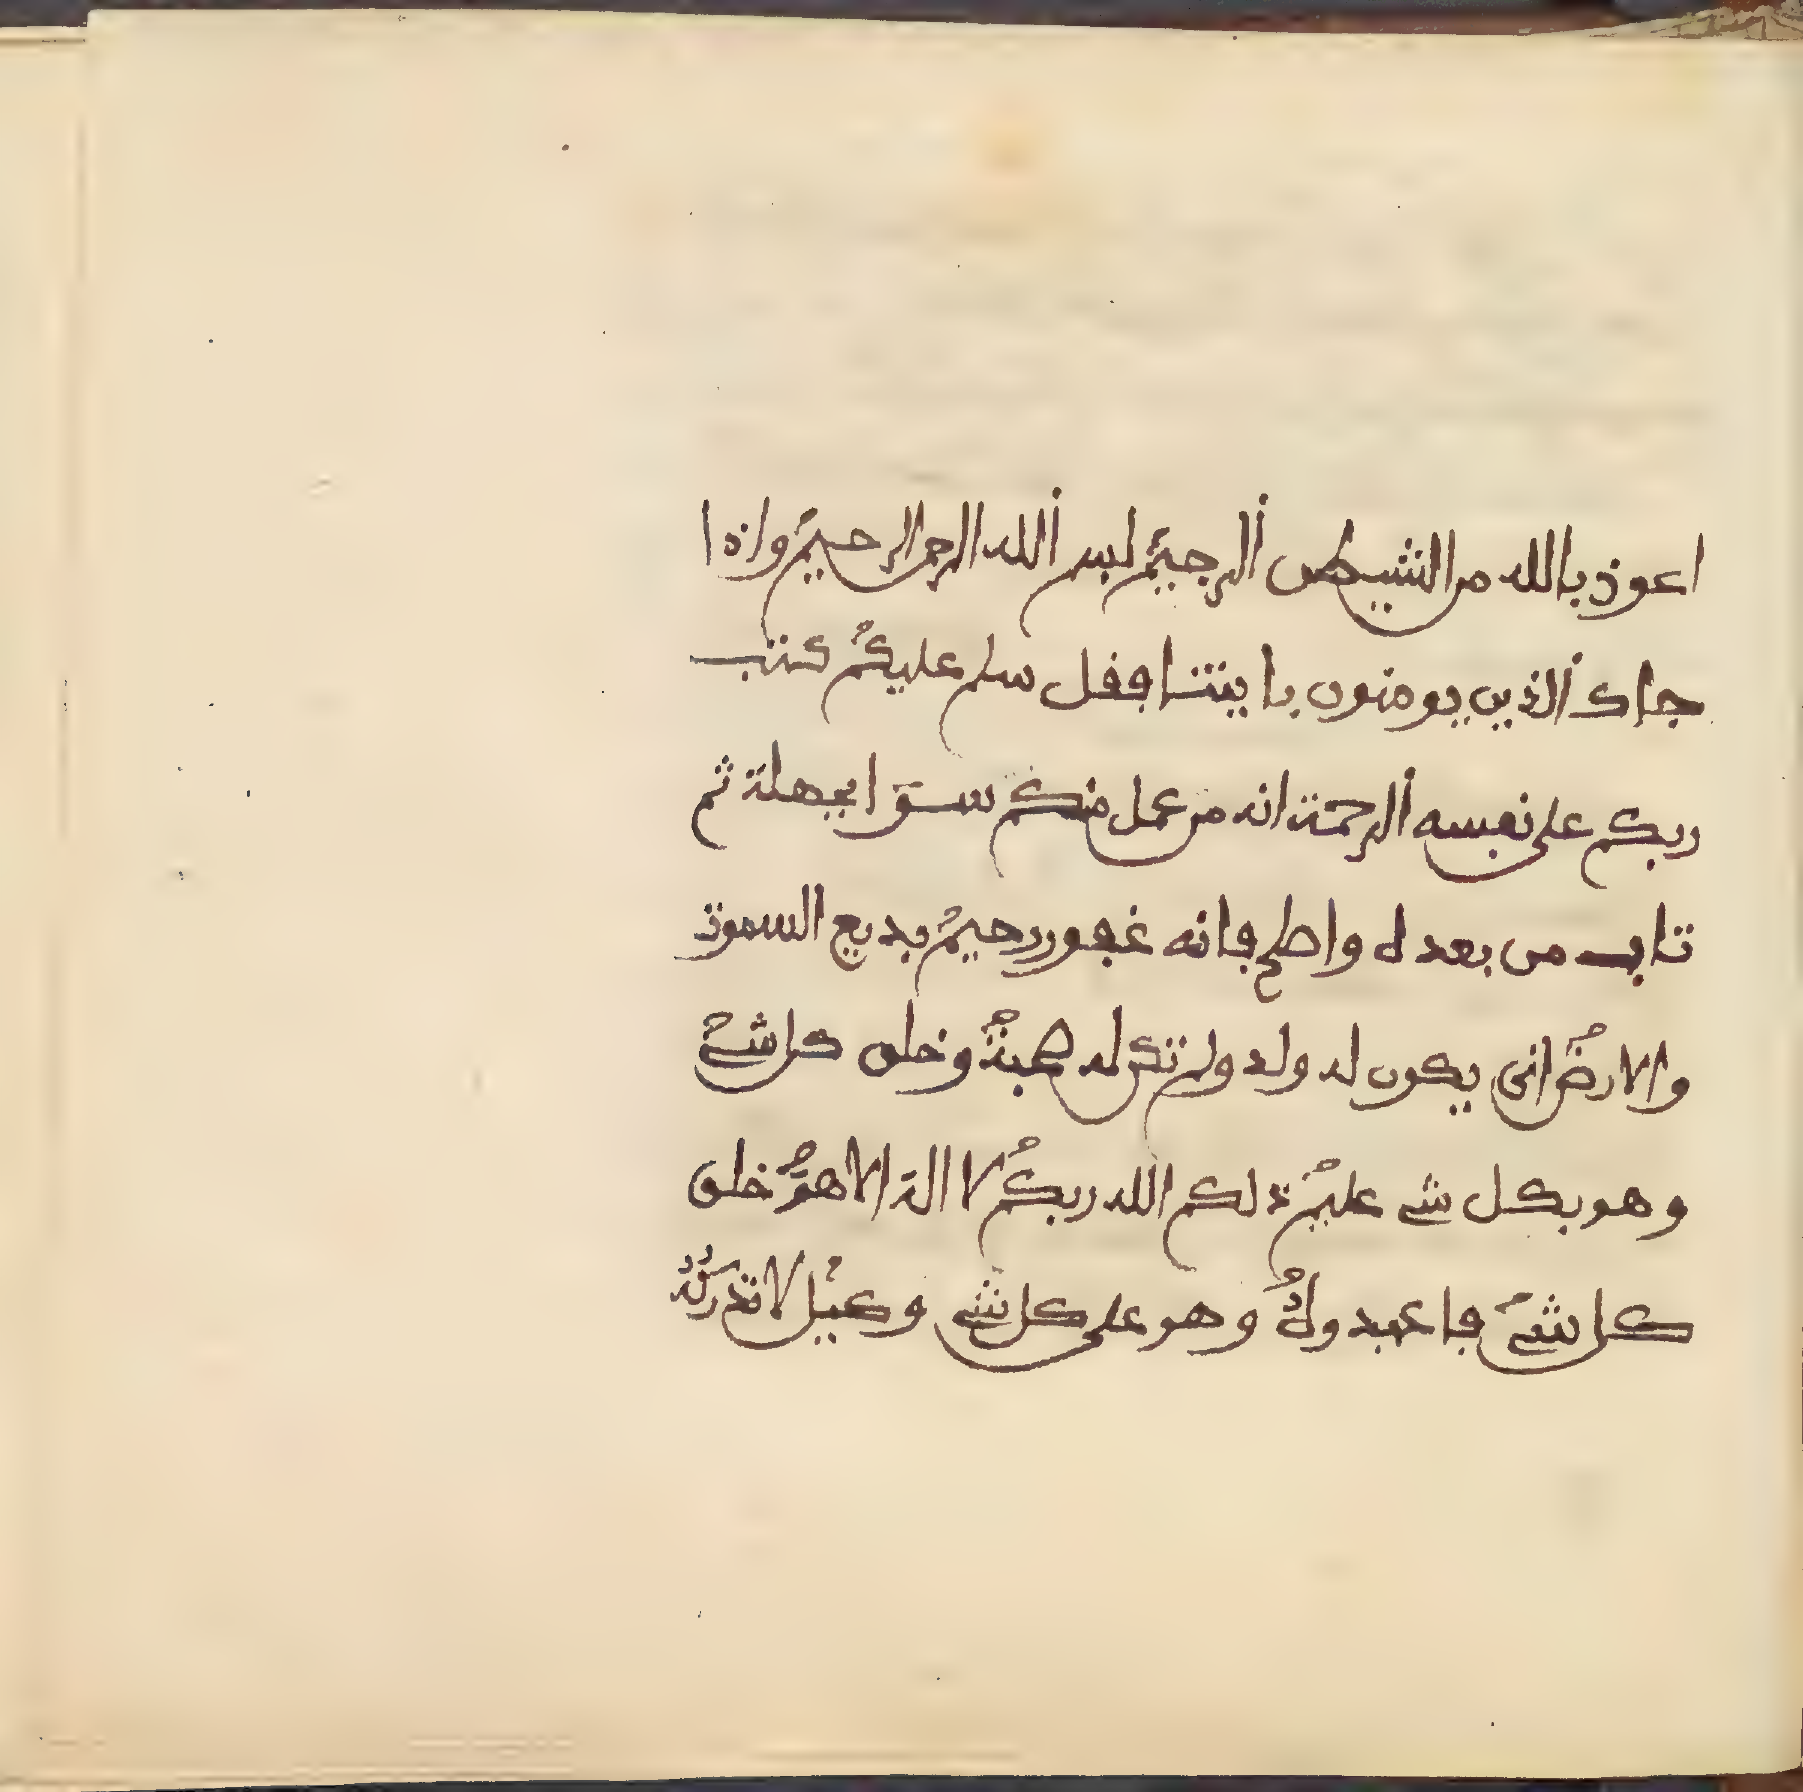 اعوذ بالله من الشيطن الرجيم بسم الله الرحمن الرحيم واذا
جاك الذين يومنون بايتنا فقل سلم عليكم كتب
ربكم على نفسه الرحمة انه من عمل منكم سوا بجهلة ثم
تاب من بعده واصلح فانه غفور رحيم بديع السموت
والارض انى يكون له ولد ولم تكن له صحبة وخلق كل شے
وهو بكل شے عليم ذلكم الله ربكم لا اله الا هو خلق
كل شے فاعبدوه وهو على كل شے وكيل لا تدركه